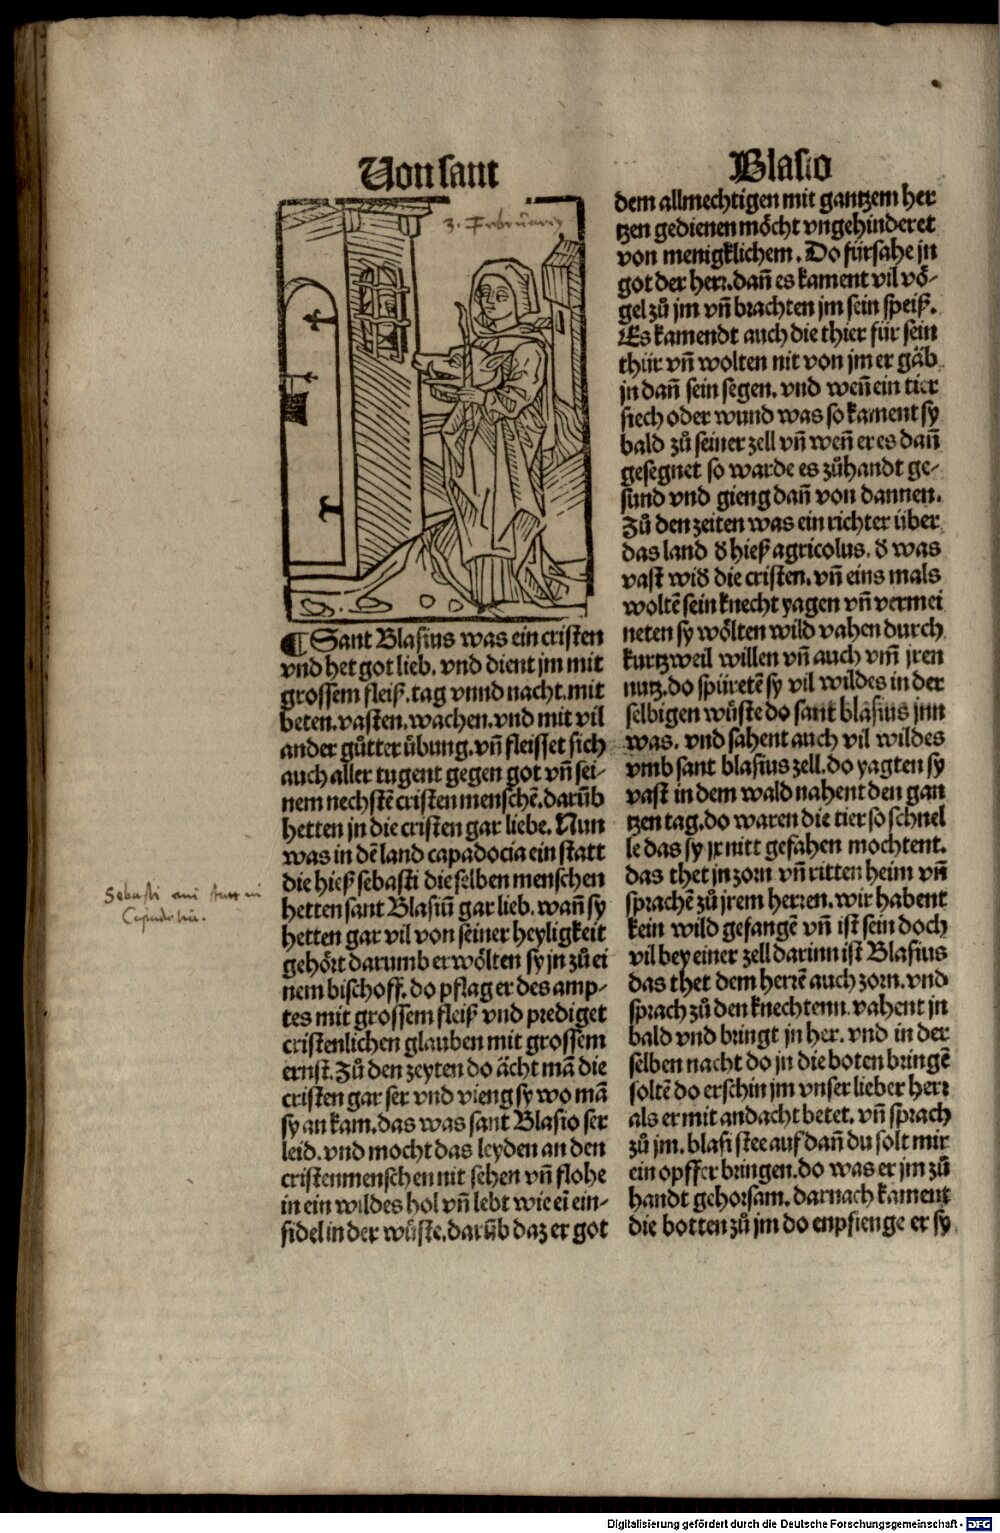 Von sant
Blasio
3. Februarij
¶ Sant Blasius was ein cristen
vnd het got lieb. vnd dient jm mit
grossem fleiß. tag vnnd nacht. mit
beten. vasten. wachen. vnd mit vil
ander gůtter übung. vñ fleisset sich
auch aller tugent gegen got vñ sei-
nem nechstē cristen menschē. darūb
hetten jn die cristen gar liebe. Nun
was in dē land capadocia ein statt
die hieß sebasti die selben menschen
hetten sant Blasiū gar lieb. wañ sy
hetten gar vil von seiner heyligkeit
gehört darumb er wölten sy jn zů ei
nem bischoff. do pflag er des amp-
tes mit grossem fleiß vnd prediget
cristenlichen glauben mit grossem
ernst. Zů den zeyten do ächt mā die
cristen gar ser vnd vieng sy wo mā
sy an kam. das was sant Blasio ser
leid. vnd mocht das leyden an den
cristenmenschen nit sehen vñ flohe
in ein wildes hol vñ lebt wie eī ein-
sidel in der wüste. darūb daz er got
Sebasti ein statt in
Capadotia.
dem allmechtigen mit gantzem her
tzen gedienen möcht vngehinderet
von menigklichem. Do fürsahe jn
got der herr. dañ es kament vil vö-
gel zů jm vñ brachten jm sein speiß.
Es kamendt auch die thier für sein
thür vñ wolten nit von jm er gäb
jn dañ sein segen. vnd weñ ein tier
siech oder wund was so kament sy
bald zů seiner zell vñ weñ er es dañ
gesegnet so warde es zůhandt ge-
sund vnd gieng dañ von dannen.
Zů den zeiten was ein richter über
das land d hieß agricolus. d was
vast wid die cristen. vñ eins mals
woltē sein knecht yagen vñ vermei
neten sy wölten wild vahen durch
kurtzweil willen vñ auch vm̄ jren
nutz. do spüretē sy vil wildes in der
selbigen wüste do sant blasius jnn
was. vnd sahent auch vil wildes
vmb sant blasius zell. do yagten sy
vast in dem wald nahent den gan
tzen tag. do waren die tier so schnel
le das sy jr nitt gefahen mochtent.
das thet jn zorn vñ ritten heim vñ
sprachē zů jrem herren. wir habent
kein wild gefangē vñ ist sein doch
vil bey einer zell darinn ist Blasius
das thet dem herrē auch zorn. vnd
sprach zů den knechtenn. vahent jn
bald vnd bringt jn her. vnd in der
selben nacht do jn die boten bringē
soltē do erschin jm vnser lieber herr
als er mit andacht betet. vñ sprach
zů jm. blasi stee auf dañ du solt mir
ein opffer bringen. do was er jm zů
handt gehorsam. darnach kament
die botten zů jm do enpfienge er sy
Digitalisierung gefördert durch die Deutsche Forschungsgemeinschaft - DFG